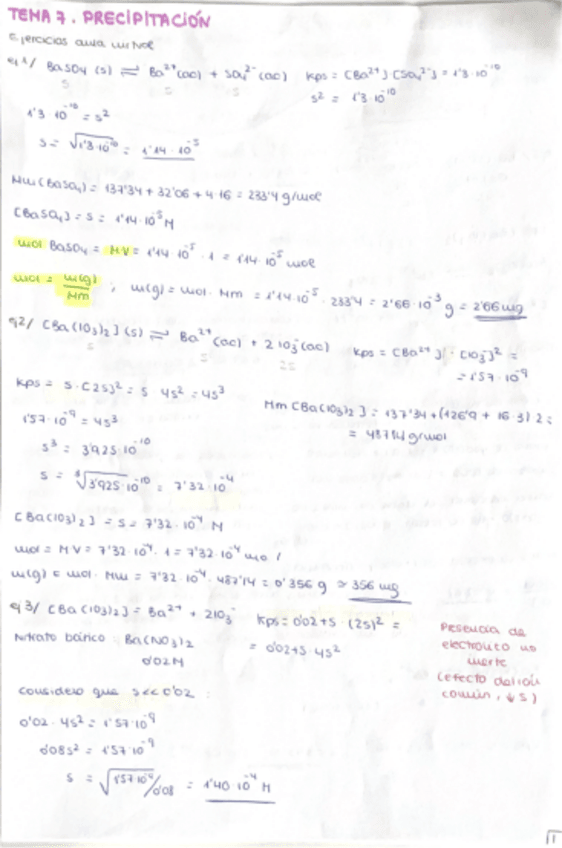 TEMA 7. PRECIPITACIÓN
Ejercicios aula virtual
ej 1/ BaSO₄ (s) ⇌ Ba²⁺(ac) + SO₄²⁻(ac) Kps = [Ba²⁺][SO₄²⁻] = 1'3·10⁻¹⁰
s s s
s² = 1'3·10⁻¹⁰
1'3·10⁻¹⁰ = s²
s = √1'3·10⁻¹⁰ = 1'14·10⁻⁵
Mm(BaSO₄) = 137'34 + 32'06 + 4·16 = 233'4 g/mol
[BaSO₄] = s = 1'14·10⁻⁵ M
mol BaSO₄ = M·V = 1'14·10⁻⁵·1 = 1'14·10⁻⁵ mol
mol = m(g)/Mm ; m(g) = mol·Mm = 1'14·10⁻⁵·233'4 = 2'66·10⁻³ g = 2'66 mg
ej 2/ [Ba(IO₃)₂](s) ⇌ Ba²⁺(ac) + 2 IO₃⁻(ac) Kps = [Ba²⁺]·[IO₃⁻]² =
s s 2s
= 1'57·10⁻⁹
Kps = s·(2s)² = s·4s² = 4s³
Mm [Ba(IO₃)₂] = 137'34 + (126'9 + 16·3)·2 =
1'57·10⁻⁹ = 4s³
= 487'14 g/mol
s³ = 3'925·10⁻¹⁰
s = ∛3'925·10⁻¹⁰ = 7'32·10⁻⁴
[Ba(IO₃)₂] = s = 7'32·10⁻⁴ M
mol = M·V = 7'32·10⁻⁴·1 = 7'32·10⁻⁴ mol
m(g) = mol·Mm = 7'32·10⁻⁴·487'14 = 0'356 g ≃ 356 mg
ej 3/ [Ba(IO₃)₂] = Ba²⁺ + 2IO₃⁻ Kps = 0'02+s·(2s)² =
Nitrato bárico: Ba(NO₃)₂ = 0'02+s·4s²
0'02 M
Presencia de
electrolito no
inerte
(efecto del ión
común, ↓s)
considero que s<<0'02:
0'02·4s² = 1'57·10⁻⁹
0'08s² = 1'57·10⁻⁹
s = √1'57·10⁻⁹/0'08 = 1'40·10⁻⁴ M
1